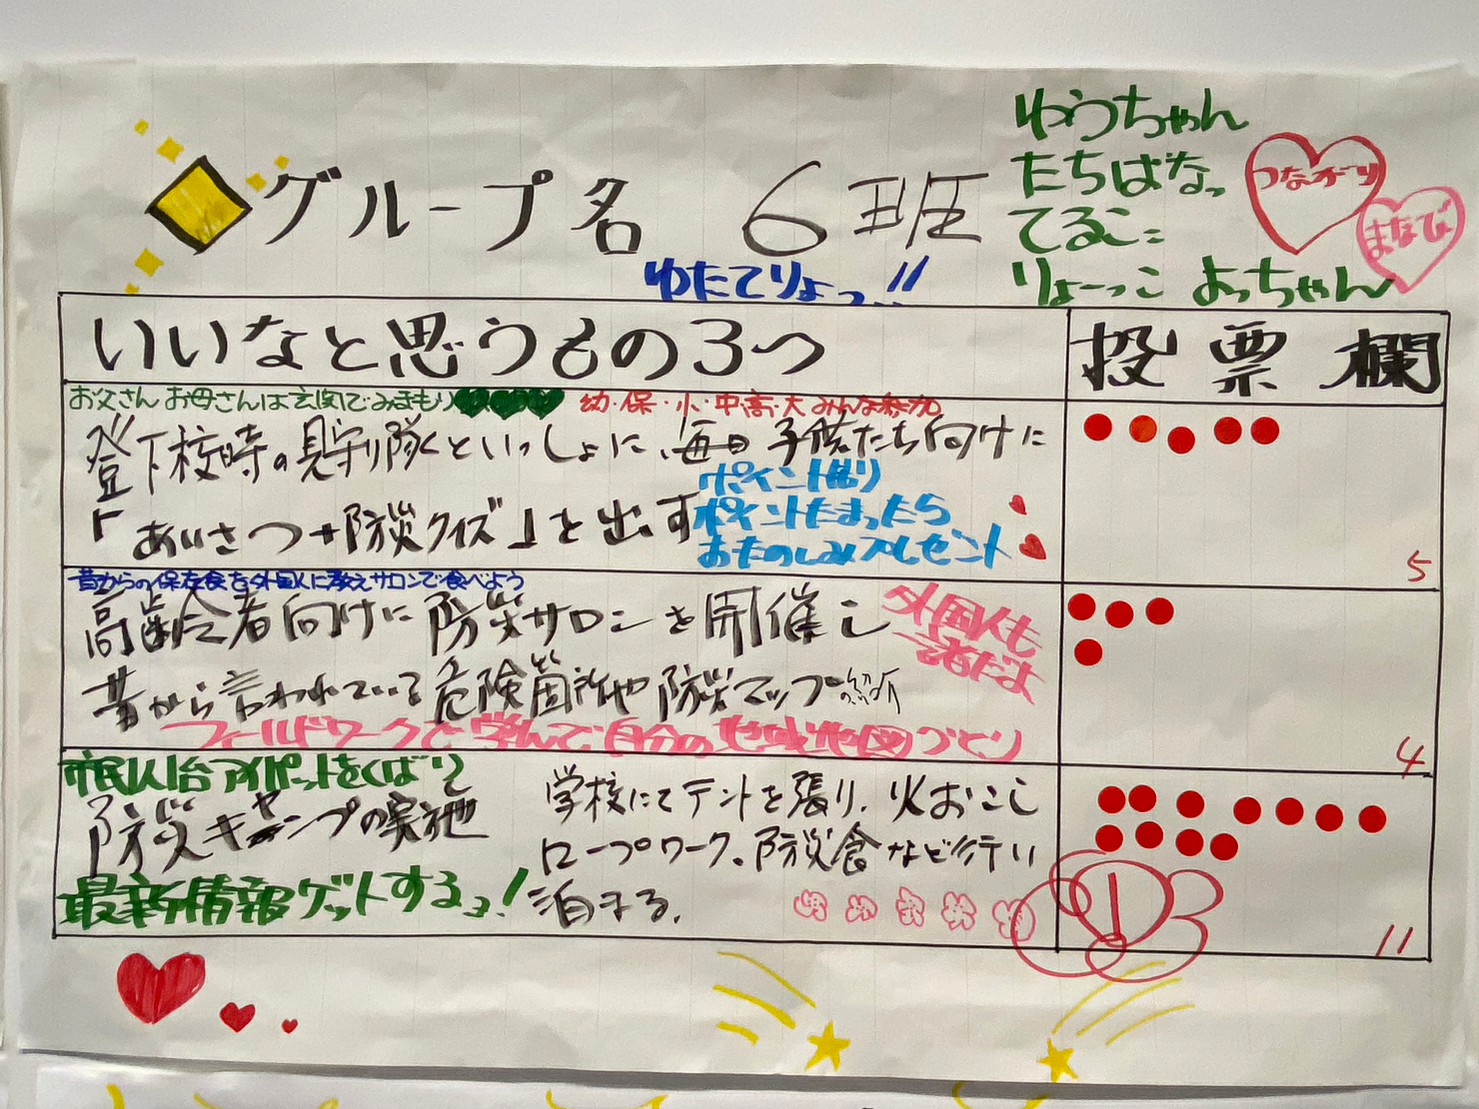 ゆうちゃん
たちばなっ
てるこ
りょーっこ よっちゃん
つながり
まなび
グループ名 6班
ゆたてりょっ!!
いいなと思うもの3つ
投票欄
お父さんお母さんは玄関でみまもり
幼・保・小・中・高・大みんな参加
登下校時の見守り隊といっしょに、毎日子供たち向けに
「あいさつ+防災クイズ」と出す
ポイント制り
ポイントたまったら
おたのしみプレゼント
5
昔からの保存食を外国人に教えサロンで食べよう
高齢者向けに防災サロンを開催し
外国人も
昔から言われている危険箇所や防災マップの紹介
フィールドワークで学んで自分の地域地図づくり
4
市民1人1台アイパットをくばり
防災キャンプの実施
最新情報ゲットするっ!
学校にてテントを張り、火おこし
ロープワーク、防災食など行い
泊まる。
1
11